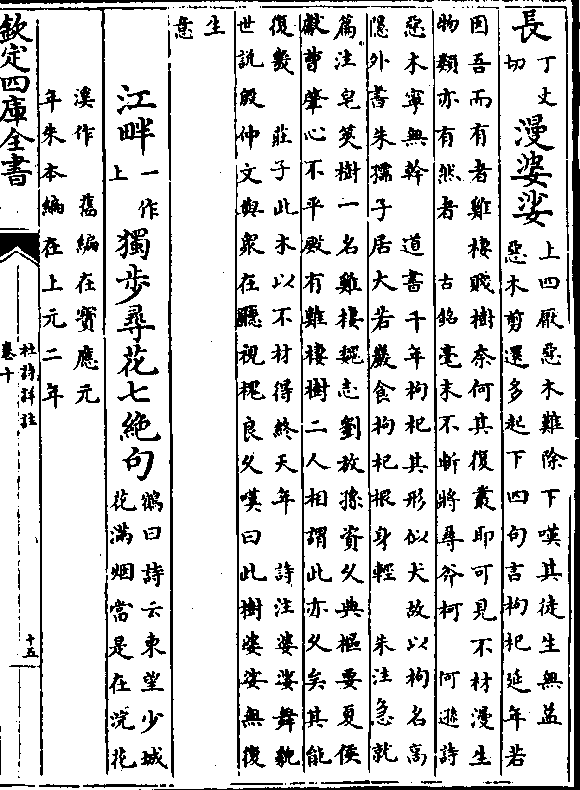 長丁丈切漫婆娑上四厭惡木難除下嘆其徒生無益
惡木剪還多起下四句言枸杞延年若
因吾而有者雞棲賤樹奈何其復叢即可見不材漫生
物類亦有然者 古銘毫末不斬將尋斧柯 何遜詩
惡木寧無幹 道書千年枸杞其形似犬故以枸名高
隱外書朱孺子居大若巖食枸杞根身輕 朱注急就
篇注皂莢樹一名雞棲魏志劉放孫資久典樞要夏侯
獻曹肇心不平殿有雞棲樹二人相謂此亦久矣其能
復幾 莊子此木以不材得終天年 詩注婆娑舞貌
世説殷仲文與衆在聽視槐良久嘆曰此樹婆娑無復
生
意
江畔一作上獨步尋花七絶句鶴曰詩云東望少城
花滿烟當是在浣花
溪作 舊編在寶應元
年朱本編在上元二年
欽定四庫全書
杜詩詳註
卷十
十五